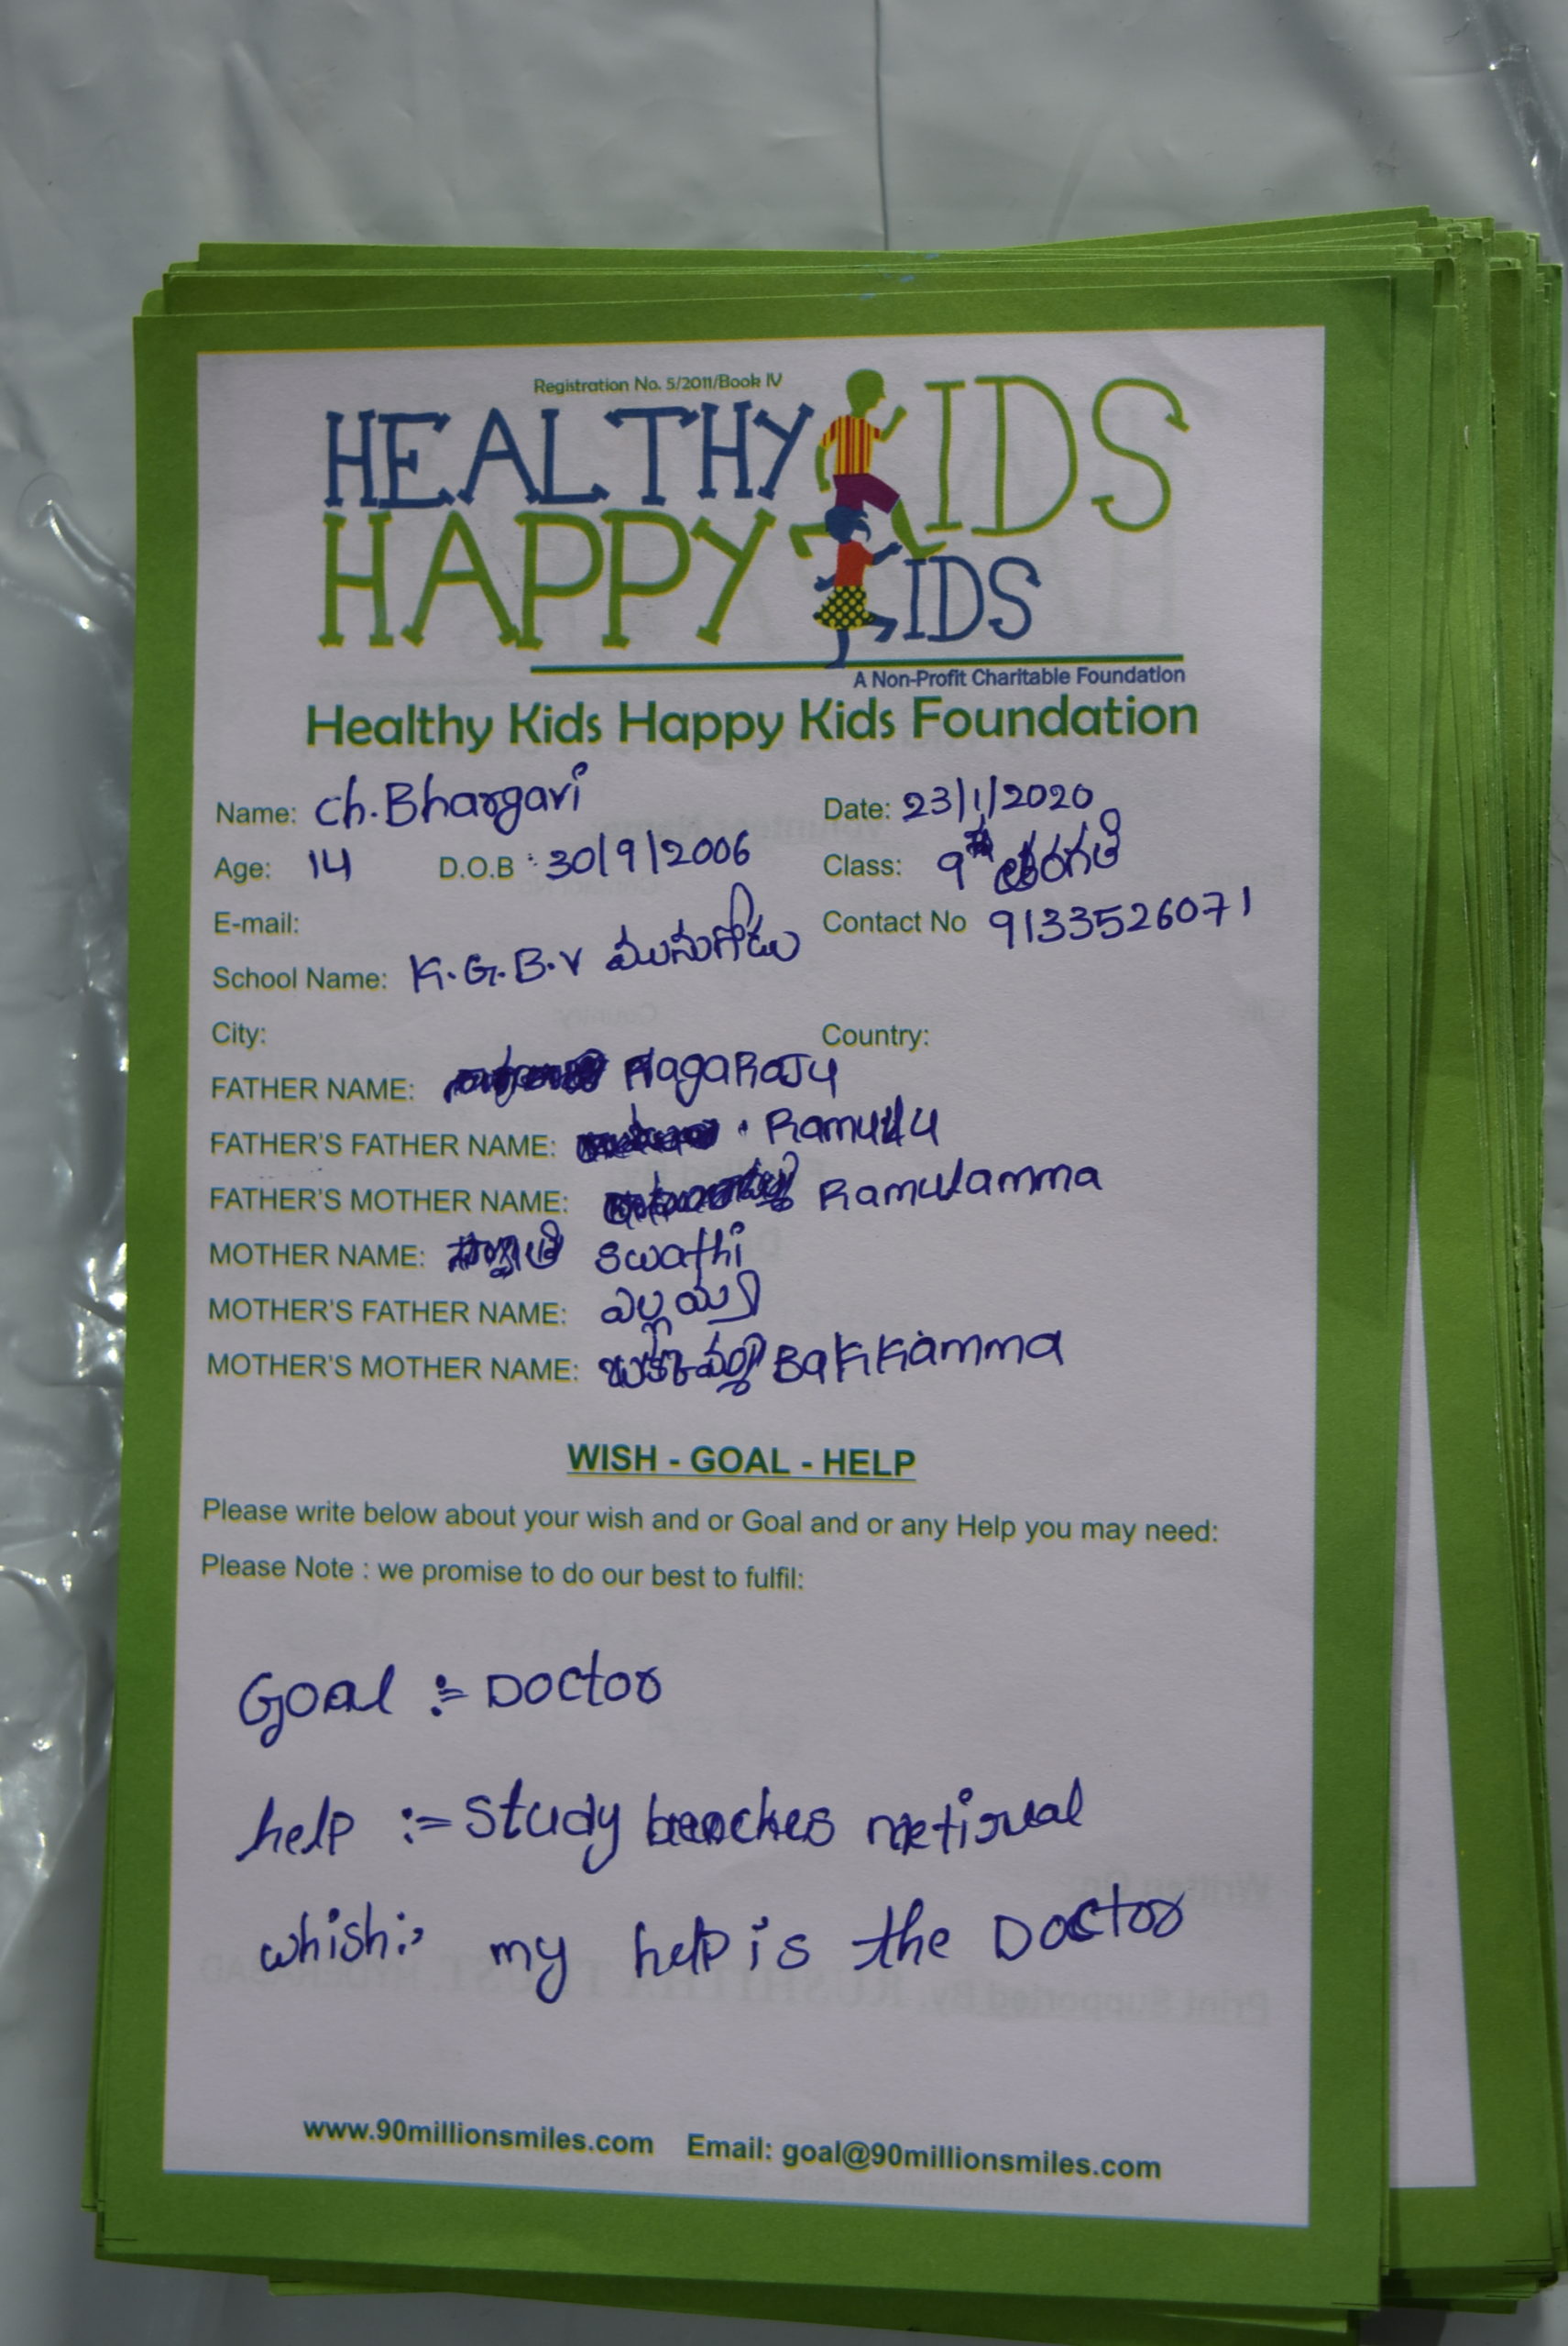 Registration No. 5/2011/Book IV
HEALTHY KIDS
HAPPY KIDS
A Non-Profit Charitable Foundation
Healthy Kids Happy Kids Foundation
Name: Ch. Bhargavi Date: 23/1/2020
Age: 14 D.O.B : 30/9/2006 Class: 9 తరగతి
E-mail: Contact No 9133526071
School Name: K.G.B.V మునుగోడు
City: Country:
FATHER NAME: NagaRaju
FATHER'S FATHER NAME: Ramulu
FATHER'S MOTHER NAME: Ramulamma
MOTHER NAME: Swathi
MOTHER'S FATHER NAME: ఎల్లయ్య
MOTHER'S MOTHER NAME: Bakkamma
WISH - GOAL - HELP
Please write below about your wish and or Goal and or any Help you may need:
Please Note : we promise to do our best to fulfil:
Goal :- Doctor
help :- study benches metirual
whish:- my help is the Doctor
www.90millionsmiles.com Email: goal@90millionsmiles.com